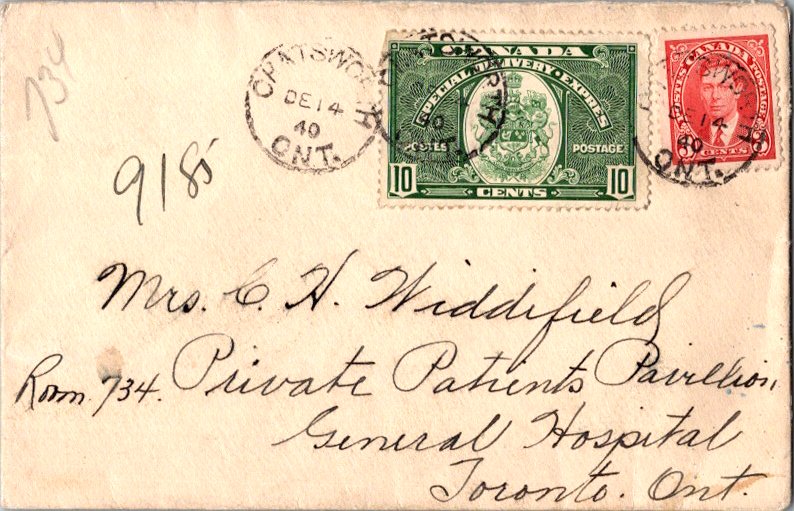 734
9185
CHATSWORTH
DE 14
40
ONT.
CANADA
SPECIAL DELIVERY · EXPRES
POSTES POSTAGE
10 CENTS 10
POSTES CANADA POSTAGE
3 CENTS 3
DE 14
40
ONT.
Mrs. C. H. Widdifield
Room 734. Private Patients Pavillion
General Hospital
Toronto. Ont.